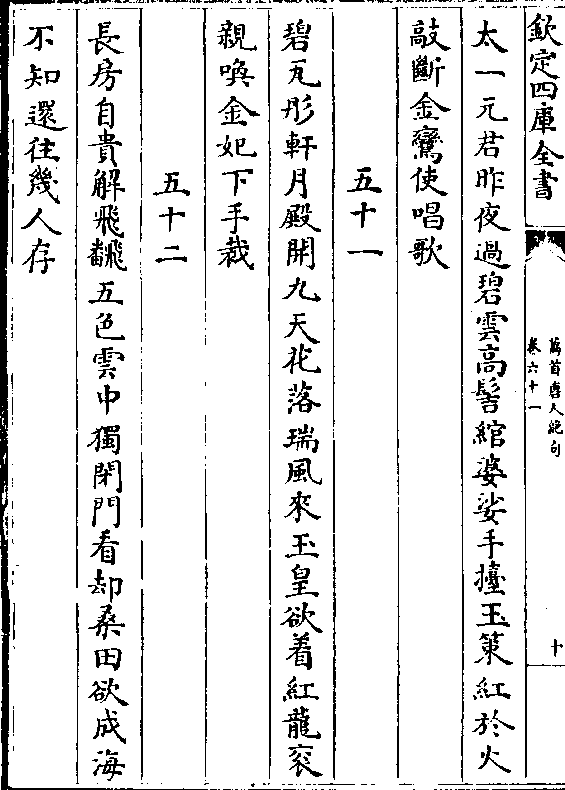 欽定四庫全書
萬首唐人絶句
卷六十一
十
太一元君昨夜過碧雲高髻綰婆娑手擡玉策紅於火
敲斷金鸞使唱歌
五十一
碧瓦彤軒月殿開九天花落瑞風來玉皇欲着紅龍衮
親喚金妃下手裁
五十二
長房自貴解飛翻五色雲中獨閉門看却桑田欲成海
不知還往幾人存